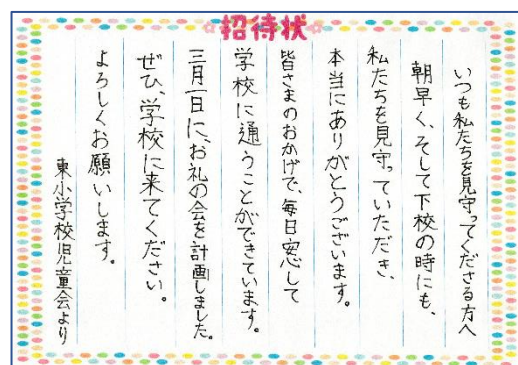 招待状
いつも私たちを見守ってくださる方へ
朝早く、そして下校の時にも、
私たちを見守っていただき、
本当にありがとうございます。
皆さまのおかげで、毎日安心して
学校に通うことができています。
三月一日に、お礼の会を計画しました。
ぜひ、学校に来てください。
よろしくお願いします。
東小学校児童会より